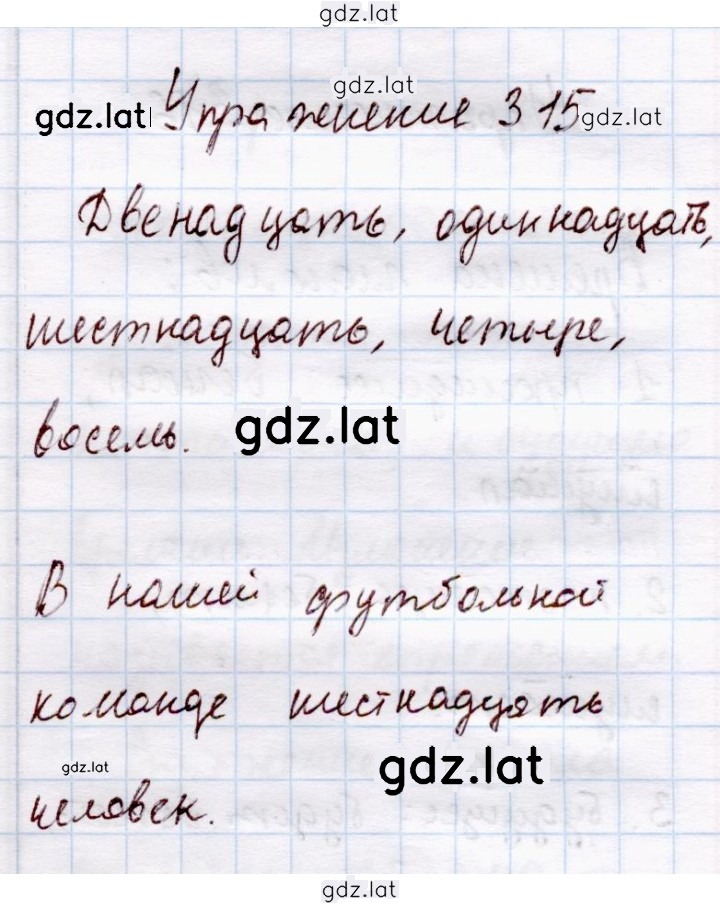 gdz.lat
gdz.lat
gdz.lat Упражнение 315 gdz.lat
Двенадцать, одиннадцать,
шестнадцать, четыре,
восемь. gdz.lat
В нашей футбольной
команде шестнадцять
gdz.lat gdz.lat
человек.
gdz.lat